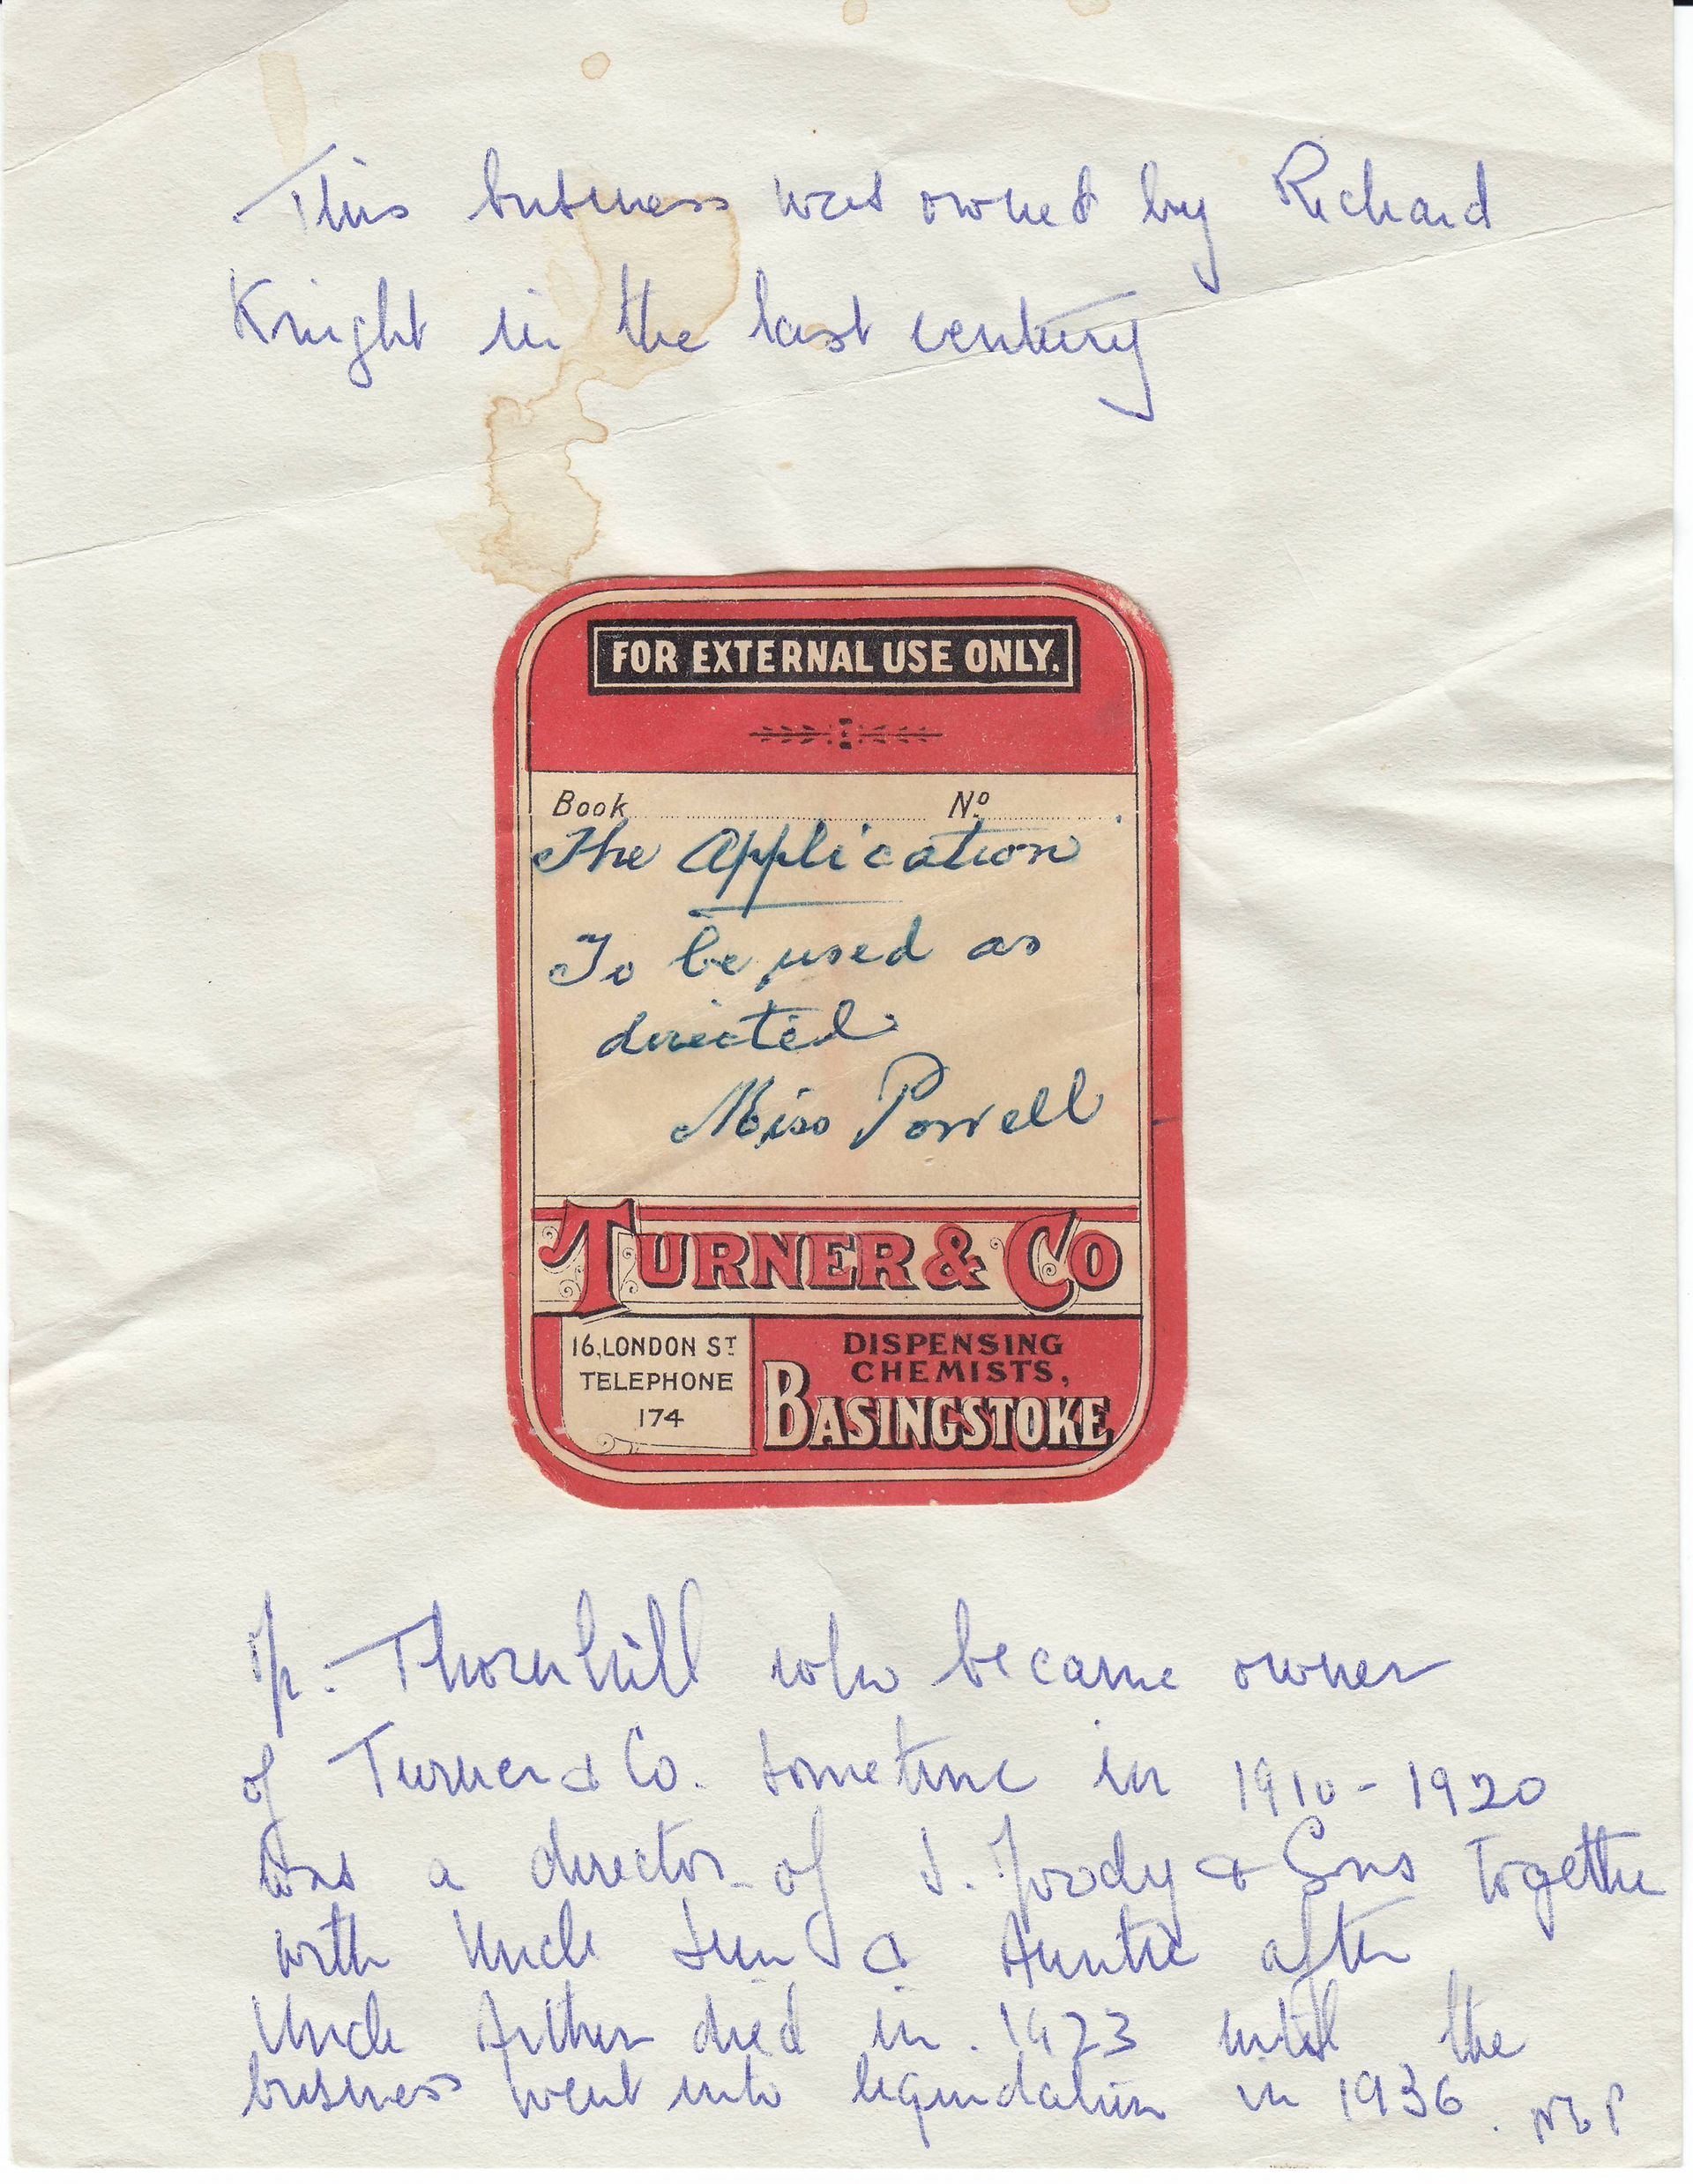 This business was owned by Richard
Knight in the last century
FOR EXTERNAL USE ONLY.
Book No
The Application
To be used as
directed
Miss Powell
TURNER & CO
16, LONDON ST
TELEPHONE
174
DISPENSING
CHEMISTS,
BASINGSTOKE
Thornhill who became owner
of Turner & Co. sometime in 1910-1920
was a director of & Sons together
with Uncle & Auntie after
Uncle Arthur died in 1923 until the
business went into liquidation in 1936.